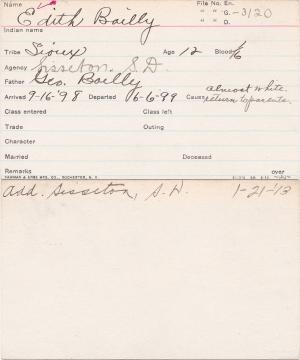 Name Edith Bailly File No. En.
" " G. -3120
Indian name " " D.
Tribe Sioux Age 12 Blood 1/6
Agency Sisseton, S.D.
Father Geo. Bailly
almost white.
Arrived 9-16-'98 Departed 6-6-99 Cause return to parents.
Class entered Class left
Trade Outing
Character
Married Deceased
Remarks over
YAWMAN & ERBE MFG. CO., ROCHESTER, N. Y.
Add. Sisseton, S.D. 1-21-'13